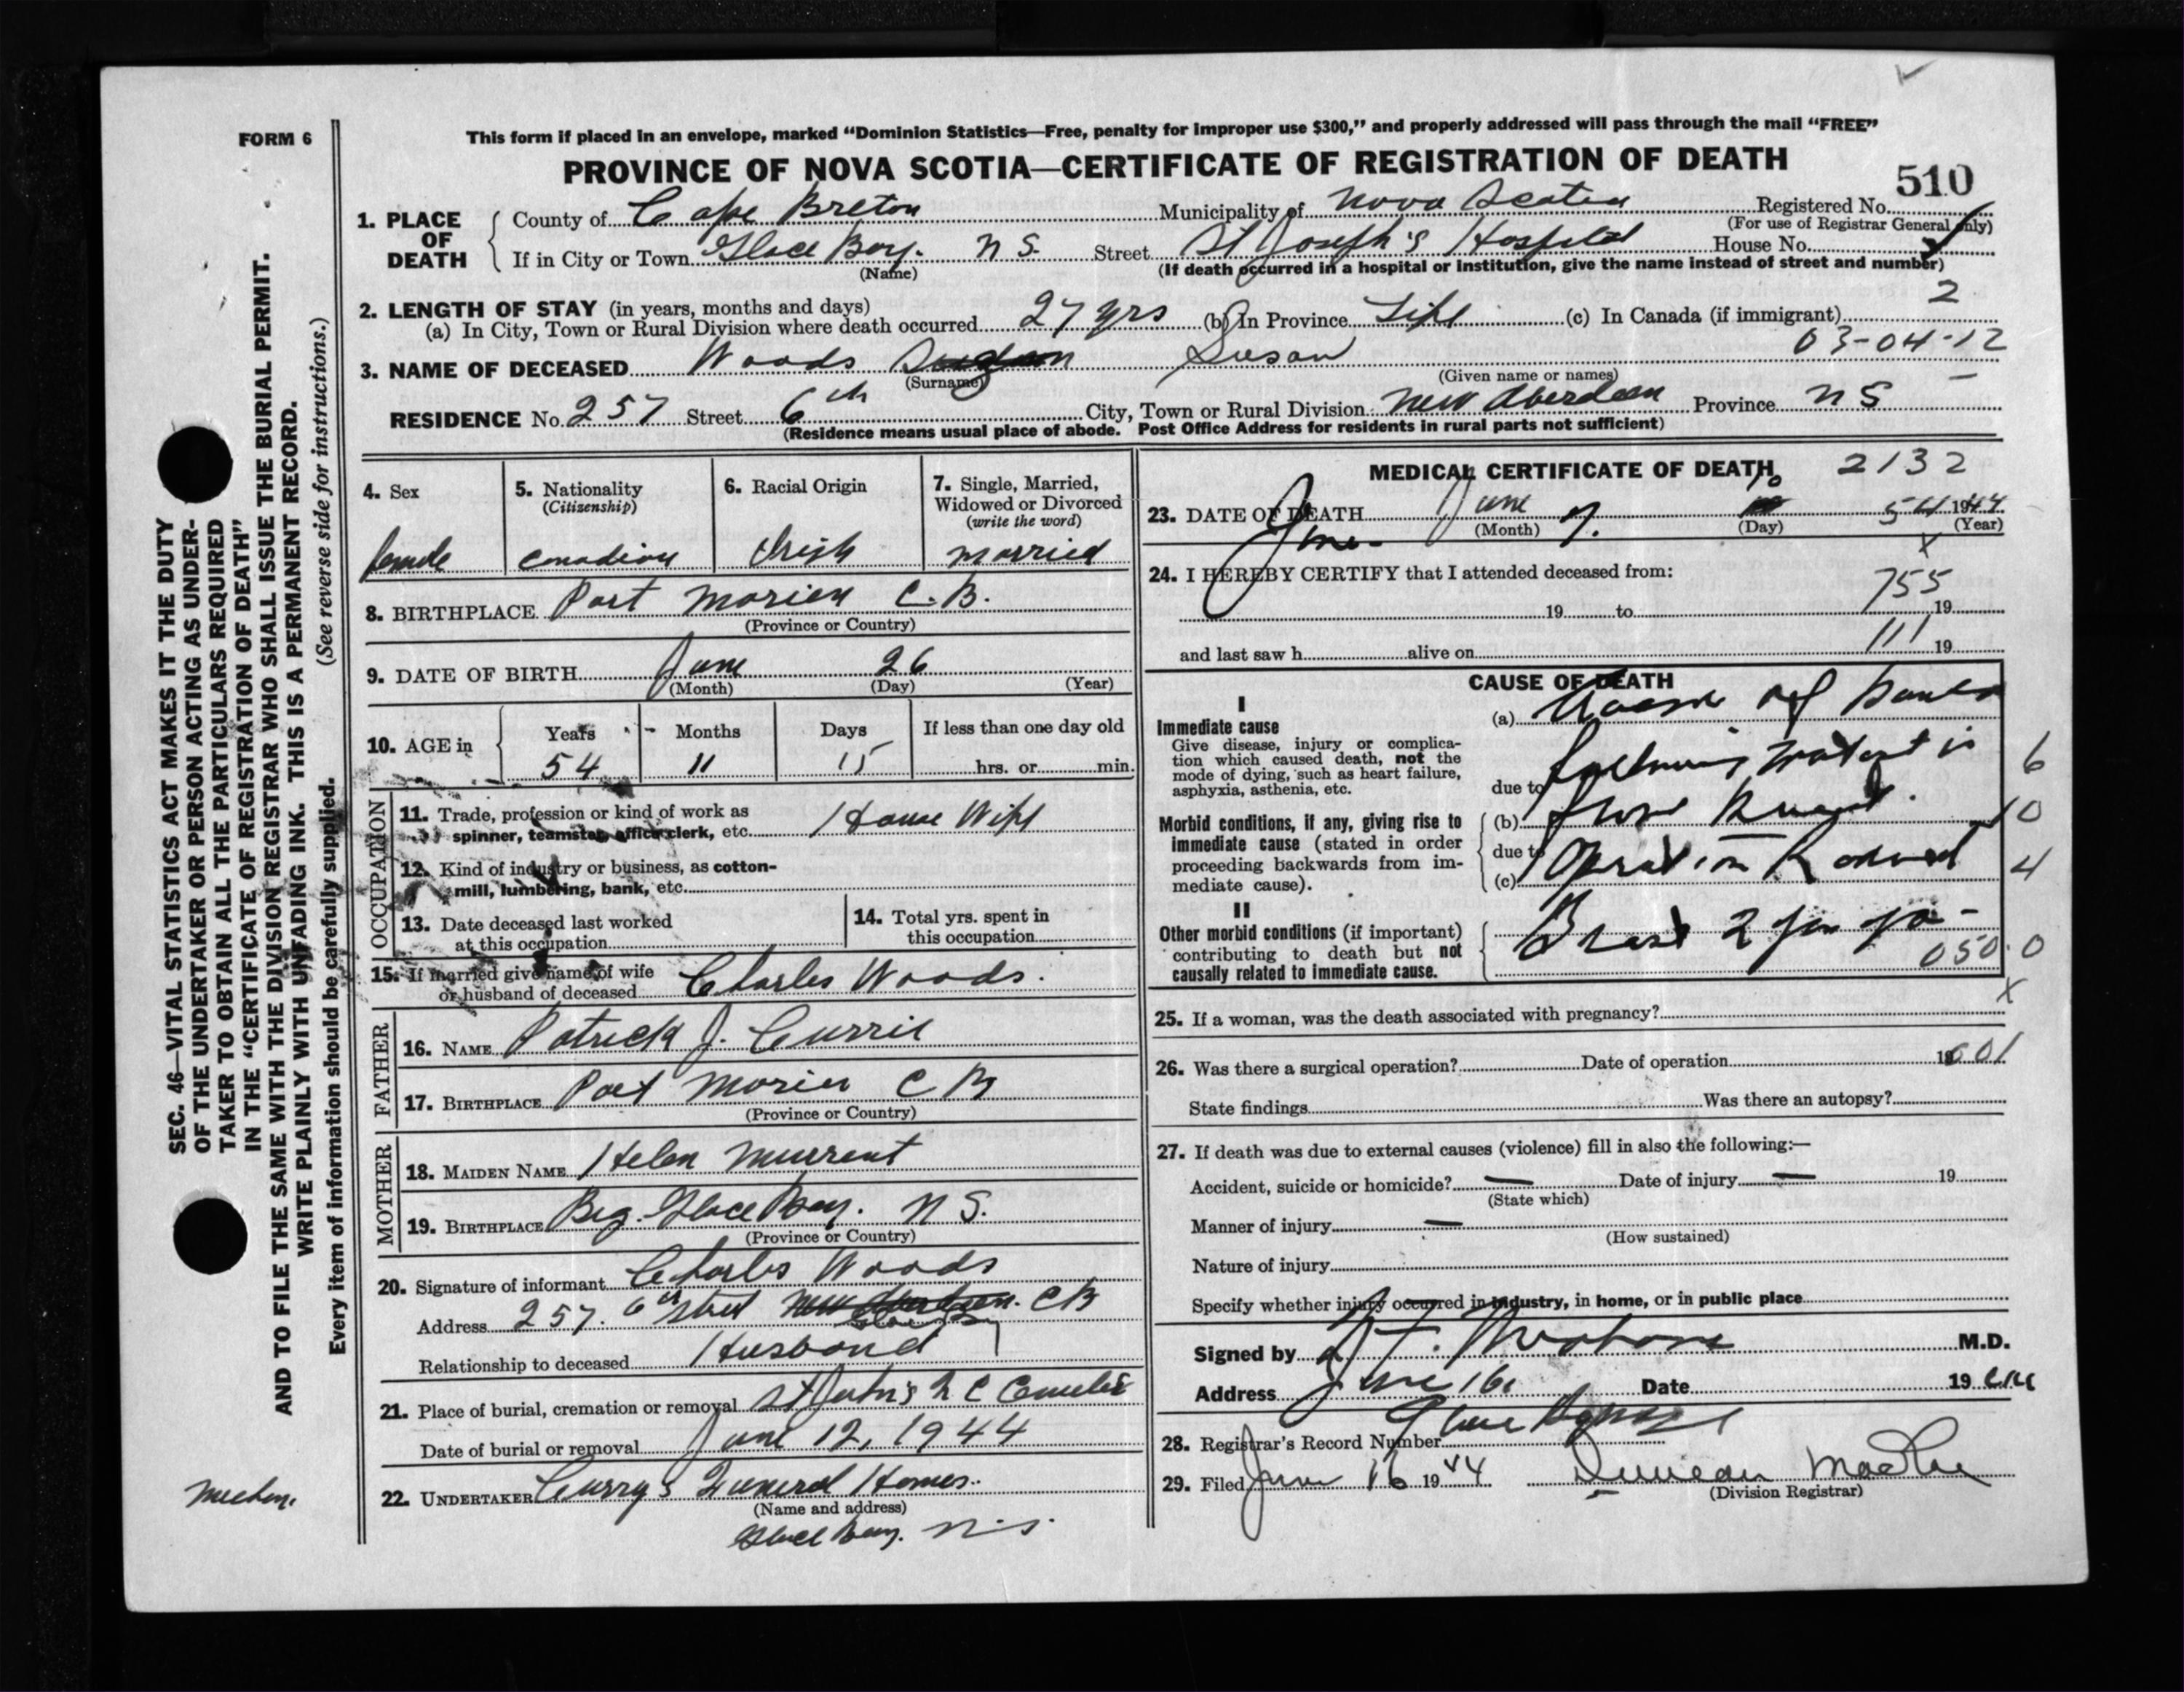 FORM 6
This form if placed in an envelope, marked “Dominion Statistics—Free, penalty for improper use $300,” and properly addressed will pass through the mail “FREE”
PROVINCE OF NOVA SCOTIA—CERTIFICATE OF REGISTRATION OF DEATH
510
1. PLACE OF DEATH County of Cape Breton Municipality of Nova Scotia Registered No.
(For use of Registrar General only)
If in City or Town Glace Bay. N S. Street St Joseph's Hospital House No.
(Name) (If death occurred in a hospital or institution, give the name instead of street and number)
2. LENGTH OF STAY (in years, months and days) 2
(a) In City, Town or Rural Division where death occurred 27 yrs (b) In Province Life (c) In Canada (if immigrant)
03-04-12
3. NAME OF DECEASED Woods Susan
(Surname) (Given name or names)
RESIDENCE No. 257 Street 6th City, Town or Rural Division New Aberdeen Province N S
(Residence means usual place of abode. Post Office Address for residents in rural parts not sufficient)
4. Sex female
5. Nationality (Citizenship) Canadian
6. Racial Origin Irish
7. Single, Married, Widowed or Divorced (write the word) married
8. BIRTHPLACE Port Morien C.B.
(Province or Country)
9. DATE OF BIRTH June 26
(Month) (Day) (Year)
10. AGE in Years 54 Months 11 Days 15 If less than one day old hrs. or min.
OCCUPATION
11. Trade, profession or kind of work as
spinner, teamster, office clerk, etc. House Wife
12. Kind of industry or business, as cotton-
mill, lumbering, bank, etc.
13. Date deceased last worked
at this occupation
14. Total yrs. spent in
this occupation
15. If married give name of wife
or husband of deceased Charles Woods.
FATHER
16. NAME Patrick J. Currie
17. BIRTHPLACE Port Morien C B
(Province or Country)
MOTHER
18. MAIDEN NAME Helen Murrant
19. BIRTHPLACE Big. Glace Bay. N S.
(Province or Country)
20. Signature of informant Charles Woods
Address 257. 6th street New Aberdeen. C B
Glace Bay
Relationship to deceased Husband
21. Place of burial, cremation or removal St John's R C
Date of burial or removal June 12, 1944
22. UNDERTAKER Curry's Funeral Homes.
(Name and address)
Glace Bay. N.S.
MEDICAL CERTIFICATE OF DEATH 2132
23. DATE OF DEATH June 10 1944
(Month) (Day) (Year)
24. I HEREBY CERTIFY that I attended deceased from:
755
19 to 19
111
and last saw h alive on 19
CAUSE OF DEATH
I
Immediate cause
Give disease, injury or complica-
tion which caused death, not the
mode of dying, such as heart failure,
asphyxia, asthenia, etc.
(a)
due to following
Morbid conditions, if any, giving rise to
immediate cause (stated in order
proceeding backwards from im-
mediate cause).
(b)
due to Operation
(c)
II
Other morbid conditions (if important)
contributing to death but not
causally related to immediate cause.
Breast 2
050.0
6
10
4
25. If a woman, was the death associated with pregnancy?
26. Was there a surgical operation? Date of operation 19
State findings Was there an autopsy?
27. If death was due to external causes (violence) fill in also the following:—
Accident, suicide or homicide? — Date of injury — 19
(State which)
Manner of injury —
(How sustained)
Nature of injury
Specify whether injury occurred in industry, in home, or in public place
Signed by M.D.
Address June 16 Date 19
28. Registrar's Record Number
29. Filed June 16 1944 Duncan MacRae
(Division Registrar)
SEC. 46—VITAL STATISTICS ACT MAKES IT THE DUTY
OF THE UNDERTAKER OR PERSON ACTING AS UNDER-
TAKER TO OBTAIN ALL THE PARTICULARS REQUIRED
IN THE “CERTIFICATE OF REGISTRATION OF DEATH”
AND TO FILE THE SAME WITH THE DIVISION REGISTRAR WHO SHALL ISSUE THE BURIAL PERMIT.
WRITE PLAINLY WITH UNFADING INK. THIS IS A PERMANENT RECORD.
Every item of information should be carefully supplied. (See reverse side for instructions.)